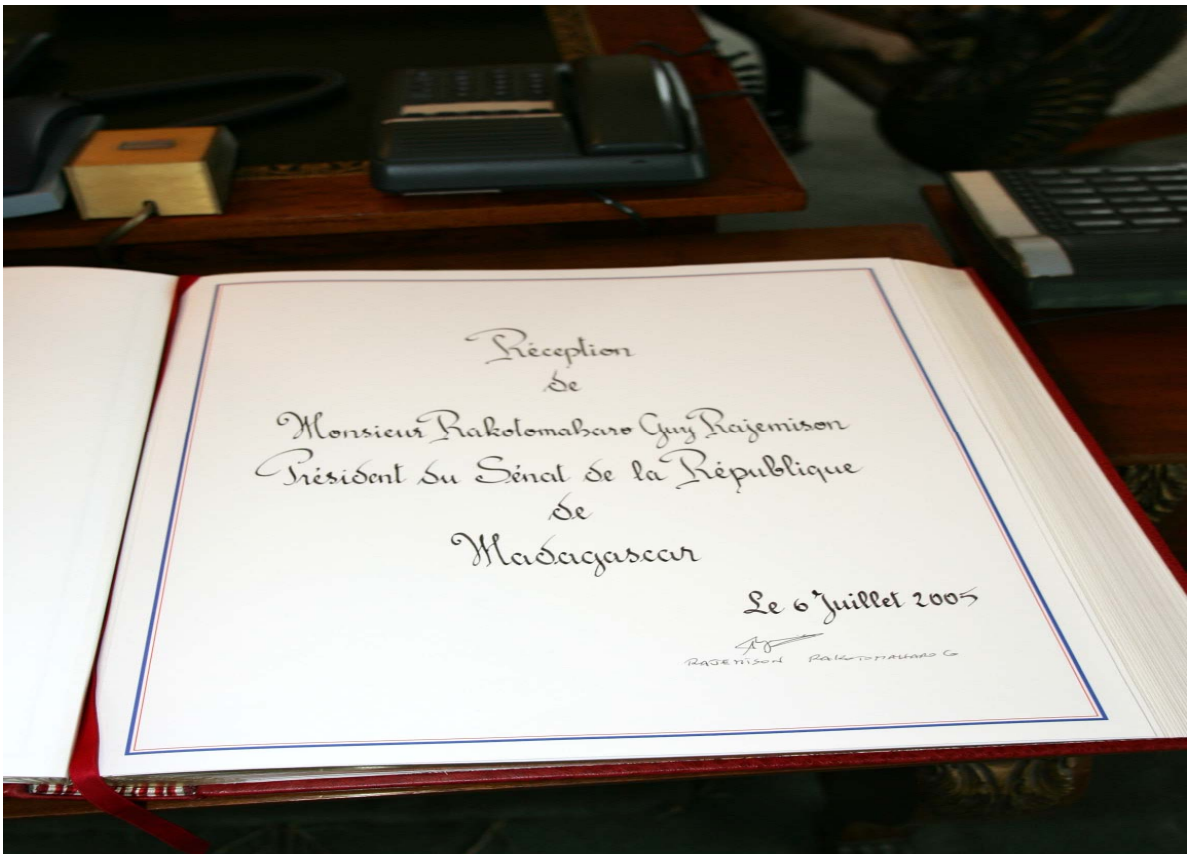 Réception
de
Monsieur Rakotomaharo Guy Rajemison
Président du Sénat de la République
de
Madagascar
Le 6 Juillet 2005
RAJEMISON RAKOTOMAHARO G